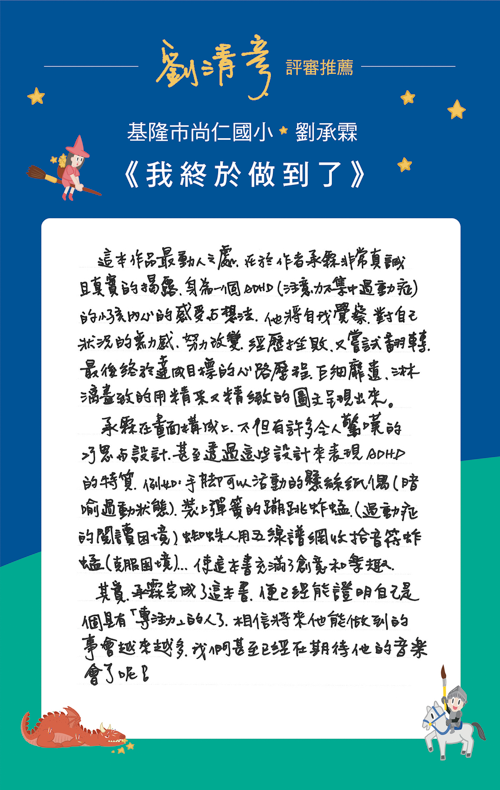 劉清彥 評審推薦
基隆市尚仁國小 劉承霖
《我終於做到了》
這本作品最動人之處,在於作者承霖非常真誠
且真實的揭露,身為一個ADHD(注意力不集中過動症)
的小孩內心的感受與想法。他將自我覺察、對自己
狀況的無力感、努力改變、經歷挫敗、又嘗試翻轉、
最後終於達成目標的心路歷程,巨細靡遺、淋
漓盡致的用精采又精緻的圖文呈現出來。
承霖在畫面構成上,不但有許多令人驚嘆的
巧思與設計,甚至透過這些設計來表現ADHD
的特質,例如:手腳可以活動的懸絲紙偶(暗
喻過動狀態)、裝上彈簧的蹦跳蚱蜢(過動症
的閱讀困境)、蜘蛛人用五線譜網收拾音符蚱
蜢(克服困境)… 使這本書充滿了創意和樂趣。
其實,承霖完成了這本書,便已經能證明自己是
個具有「專注力」的人了,相信將來他能做到的
事會越來越多,我們甚至已經在期待他的音樂
會了呢!